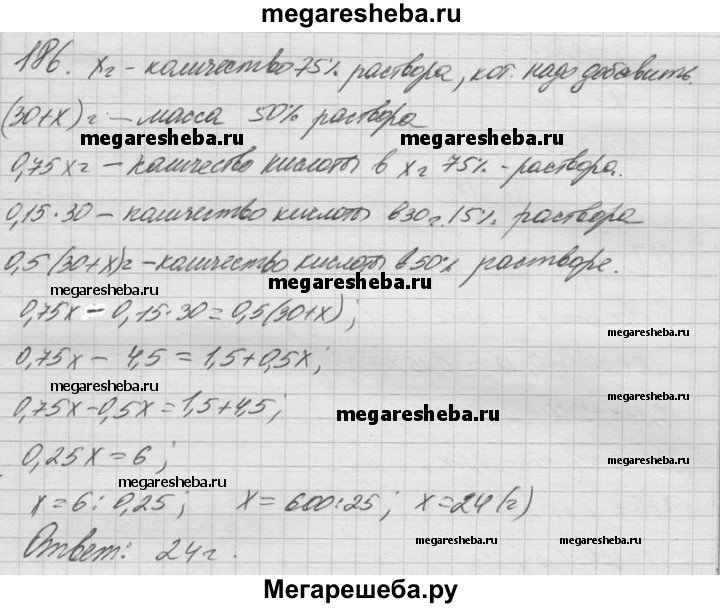 megaresheba.ru
186. хг - количество 75% раствора, кот. надо добавить.
(30+х) г - масса 50% раствора
megaresheba.ru megaresheba.ru
0,75хг - количество кислоты в хг 75% - раствора.
0,15·30 - количество кислоты в 30г. 15% раствора
0,5(30+х)г - количество кислоты в 50% растворе.
megaresheba.ru
0,75х - 0,15·30 = 0,5(30+х);
megaresheba.ru
0,75х - 4,5 = 1,5+0,5х;
megaresheba.ru
0,75х-0,5х = 1,5+4,5;
megaresheba.ru
0,25х = 6;
megaresheba.ru
х = 6 : 0,25; х = 600:25; х = 24 (г)
Ответ: 24г.
megaresheba.ru megaresheba.ru
Мегарешеба.ру